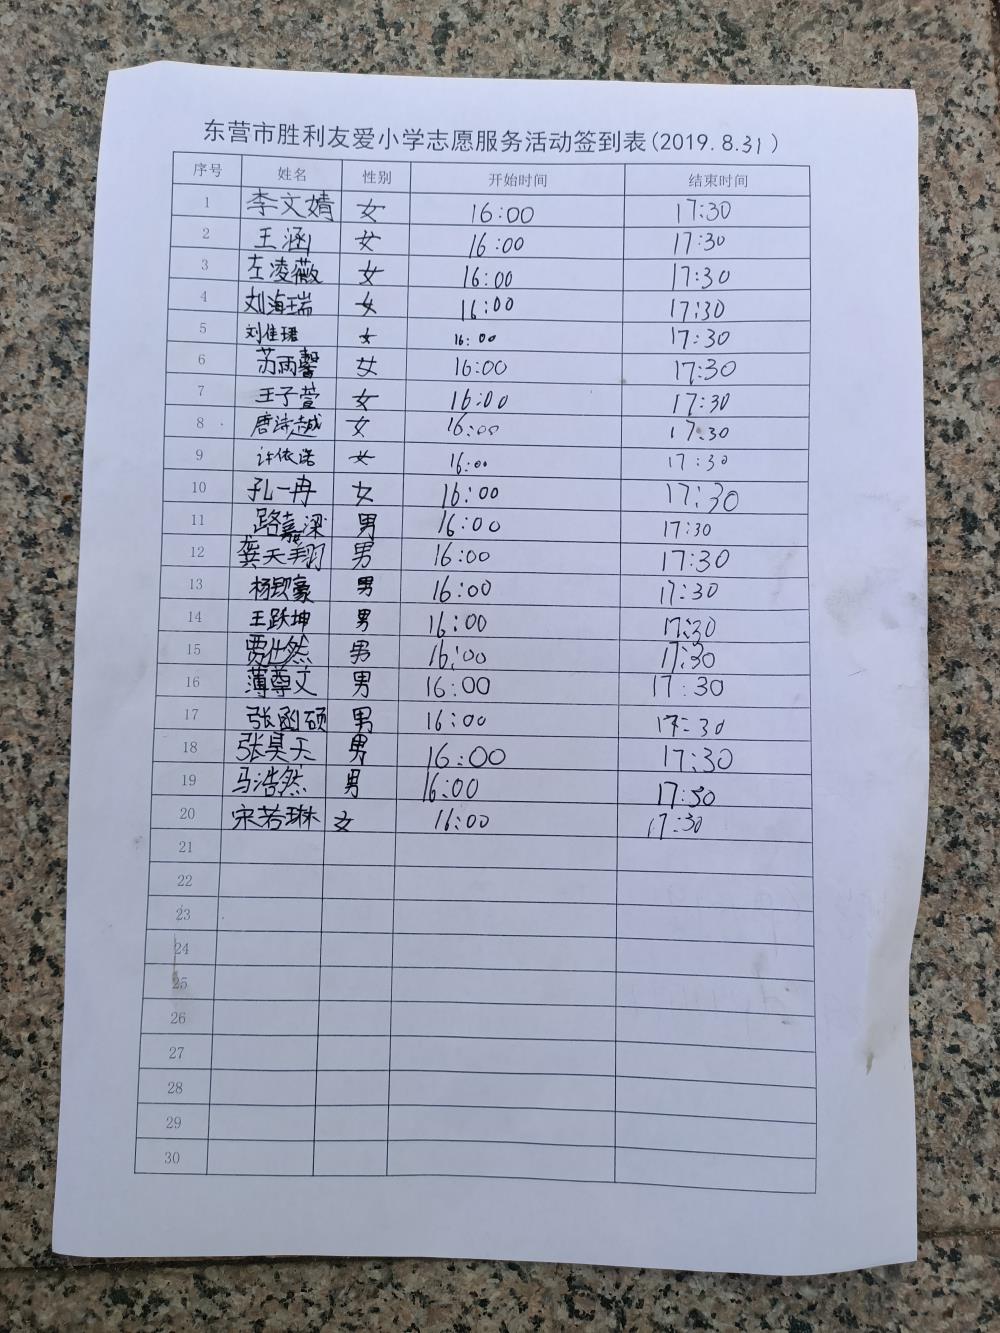 东营市胜利友爱小学志愿服务活动签到表(2019.8.31)
序号 姓名 性别 开始时间 结束时间
1 李文婧 女 16:00 17:30
2 王涵 女 16:00 17:30
3 左凌薇 女 16:00 17:30
4 刘海瑞 女 16:00 17:30
5 刘佳珺 女 16:00 17:30
6 苏雨馨 女 16:00 17:30
7 王子萱 女 16:00 17:30
8 唐诗越 女 16:00 17:30
9 许依诺 女 16:00 17:30
10 孔一冉 女 16:00 17:30
11 路嘉梁 男 16:00 17:30
12 龚天翔 男 16:00 17:30
13 男 16:00 17:30
14 王跃坤 男 16:00 17:30
15 贾仕然 男 16:00 17:30
16 薄尊文 男 16:00 17:30
17 张函硕 男 16:00 17:30
18 张昊天 男 16:00 17:30
19 马浩然 男 16:00 17:30
20 宋若琳 女 16:00 17:30
21
22
23
24
25
26
27
28
29
30